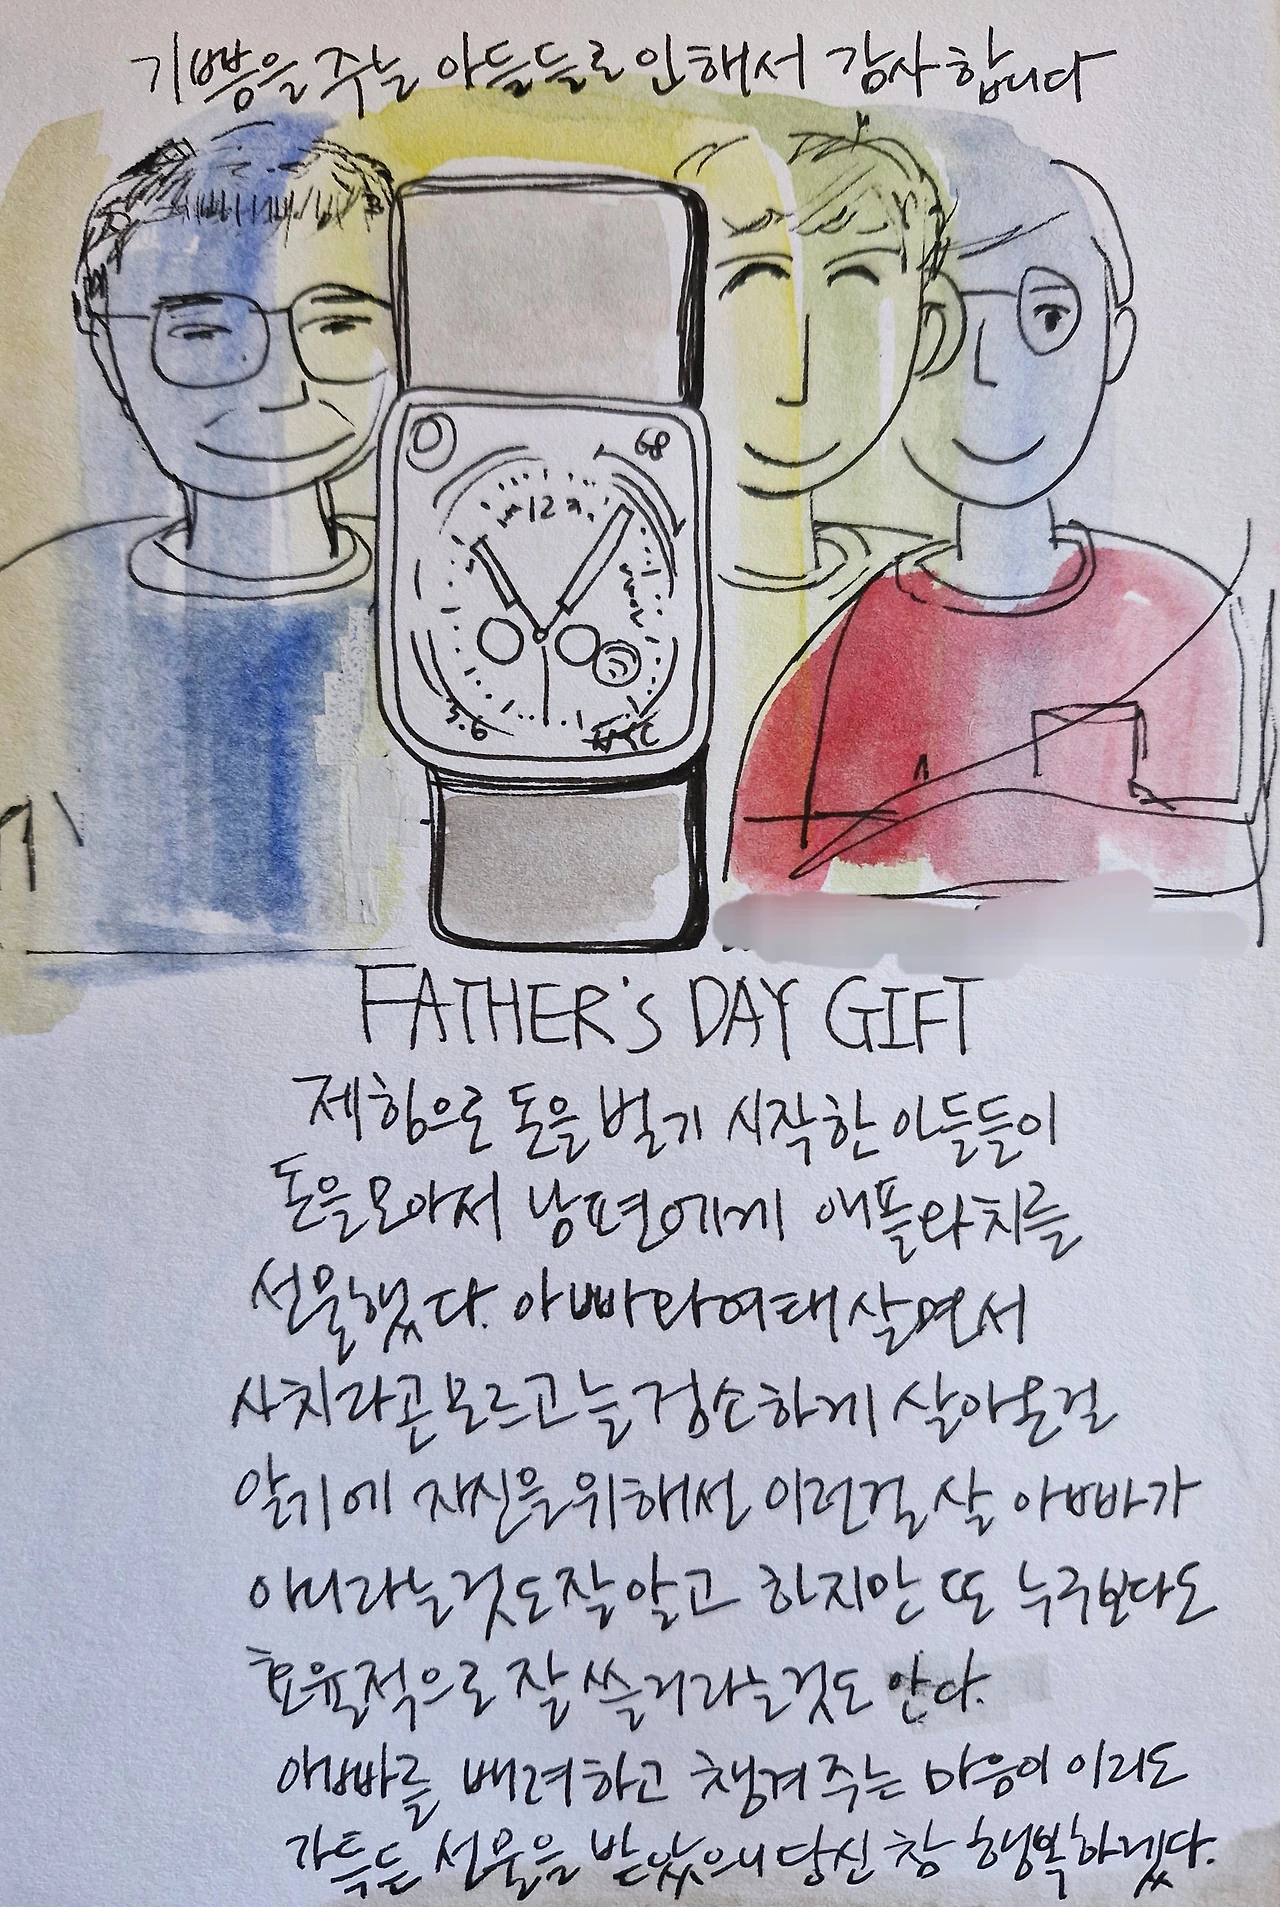 기쁨을 주는 아들들로 인해서 감사합니다
68
12
FATHER'S DAY GIFT
제힘으로 돈을 벌기 시작한 아들들이
돈을 모아서 남편에게 애플와치를
선물했다. 아빠와 여태 살면서
사치라곤 모르고 늘 검소하게 살아온걸
알기에 자신을 위해선 이런걸 살 아빠가
아니라는것도 잘 알고 하지만 또 누구보다도
효율적으로 잘 쓸거라는것도 안다.
아빠를 배려하고 챙겨주는 마음이 이리도
가득든 선물을 받았으니 당신 참 행복하겠다.